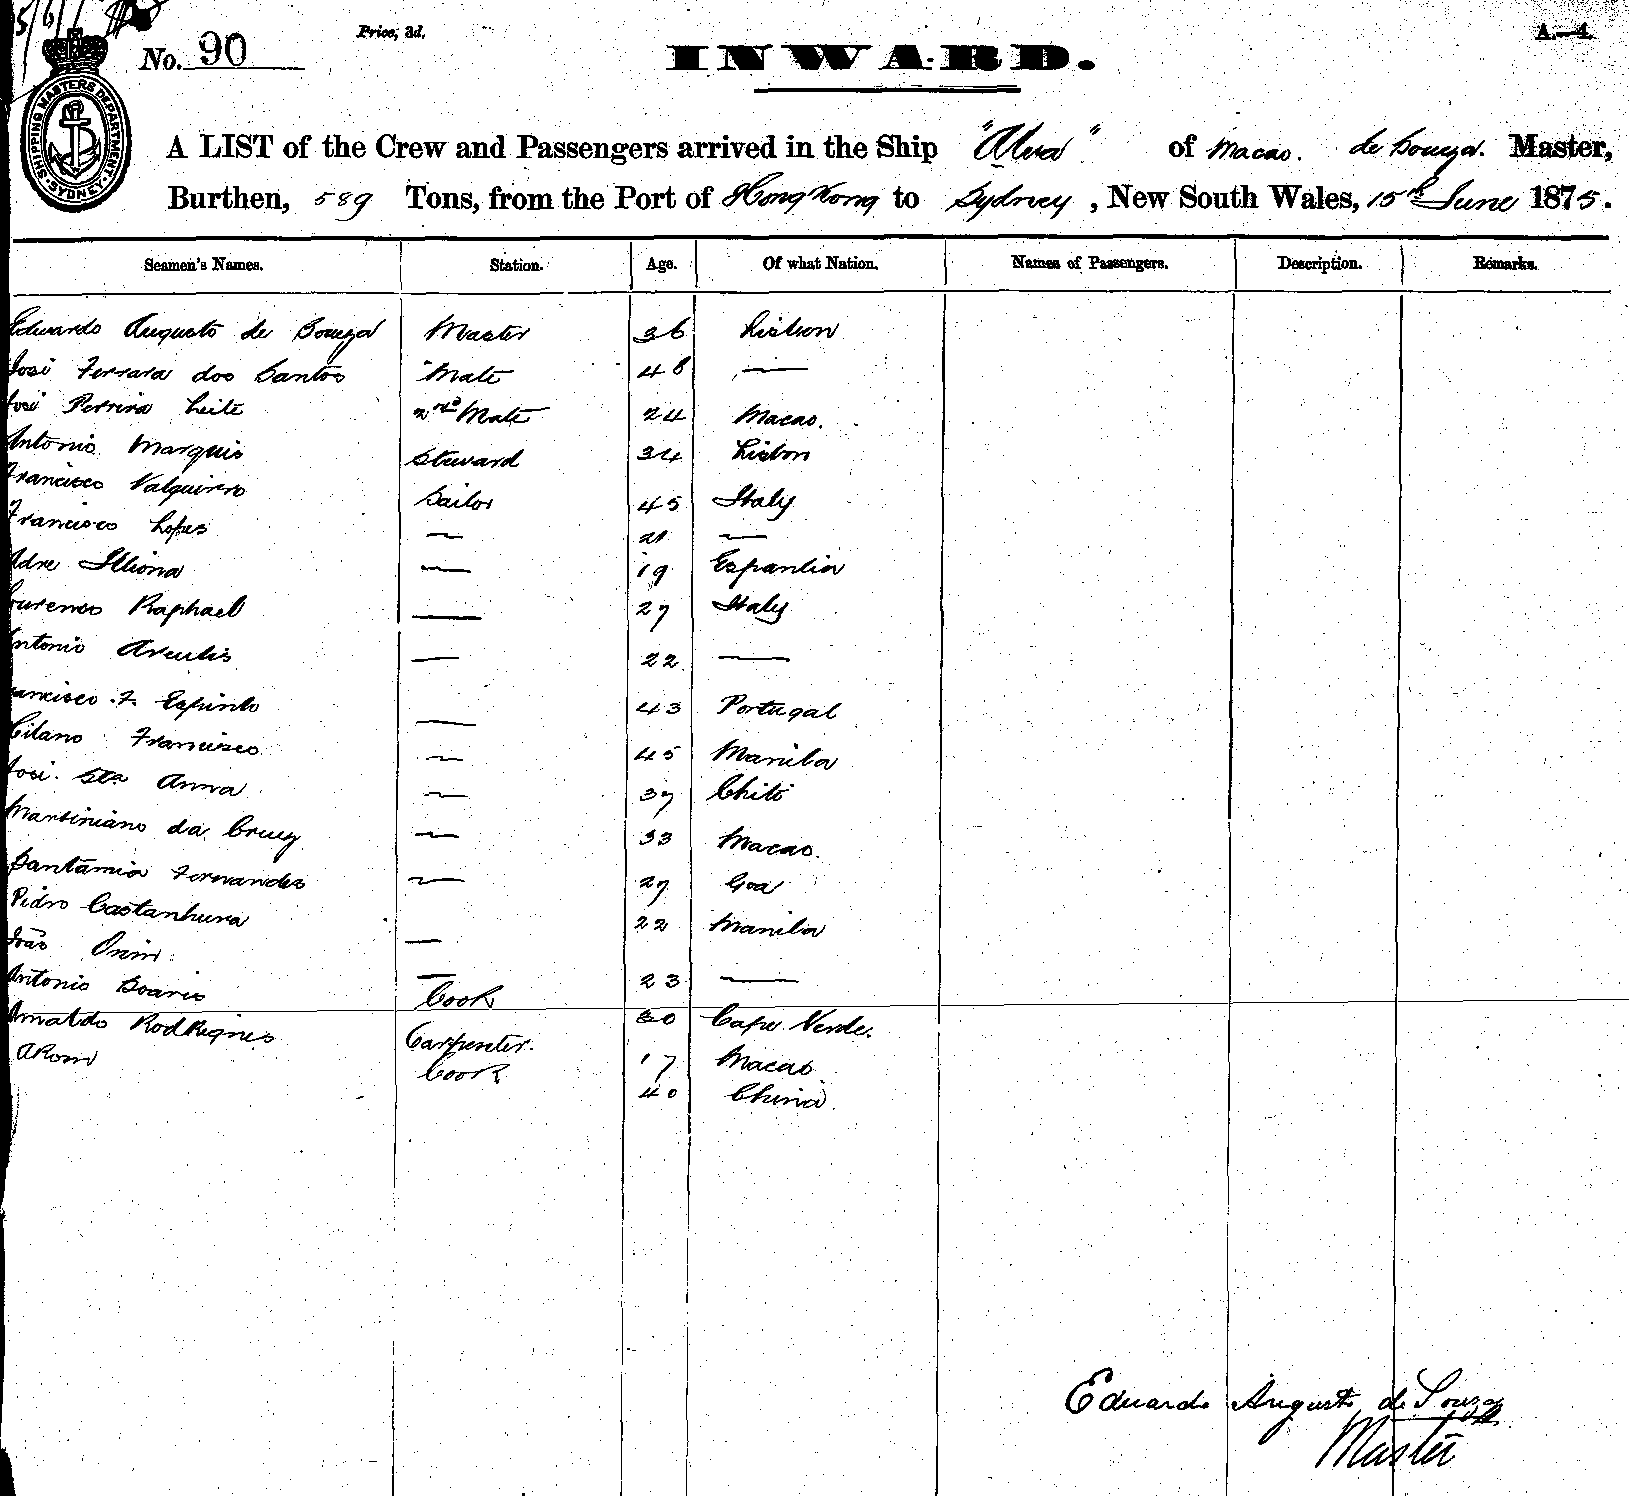 5/6/
No. 90
Price, 3d.
A.—4.
SHIPPING MASTERS DEPARTMENT. SYDNEY.
INWARD.
A LIST of the Crew and Passengers arrived in the Ship "Alva" of Macao. de Souza. Master,
Burthen, 589 Tons, from the Port of Hong Kong to Sydney, New South Wales, 15th June 1875.
Seamen's Names. Station. Age. Of what Nation. Names of Passengers. Description. Remarks.
Eduardo Augusto de Souza Master 36 Lisbon
José Ferrara dos Santos Mate 48 —
José Perrira Leite 2nd Mate 24 Macao.
Antonio Marquis Steward 34 Lisbon
Francisco Valquirro Sailor 45 Italy
Francisco Lopes — 21 —
Adre Illiona — 19 Espanlia
Lourenco Raphael — 27 Italy
Antonio — 22 —
Francisco F. Espinlo — 43 Portugal
Cilano Francisco — 45 Manila
José Sta Anna — 37 Chili
Martiniano da Cruz — 33 Macao.
Santamia Fernandes — 27 Goa
Pidro Castanhura — 22 Manila
João — 23 —
Antonio Soares Cook 30 Cape Verde.
Arnaldo Rodrigues Carpenter. 17 Macao
Arom Cook 40 China
Eduardo Augusto de Souza
Master